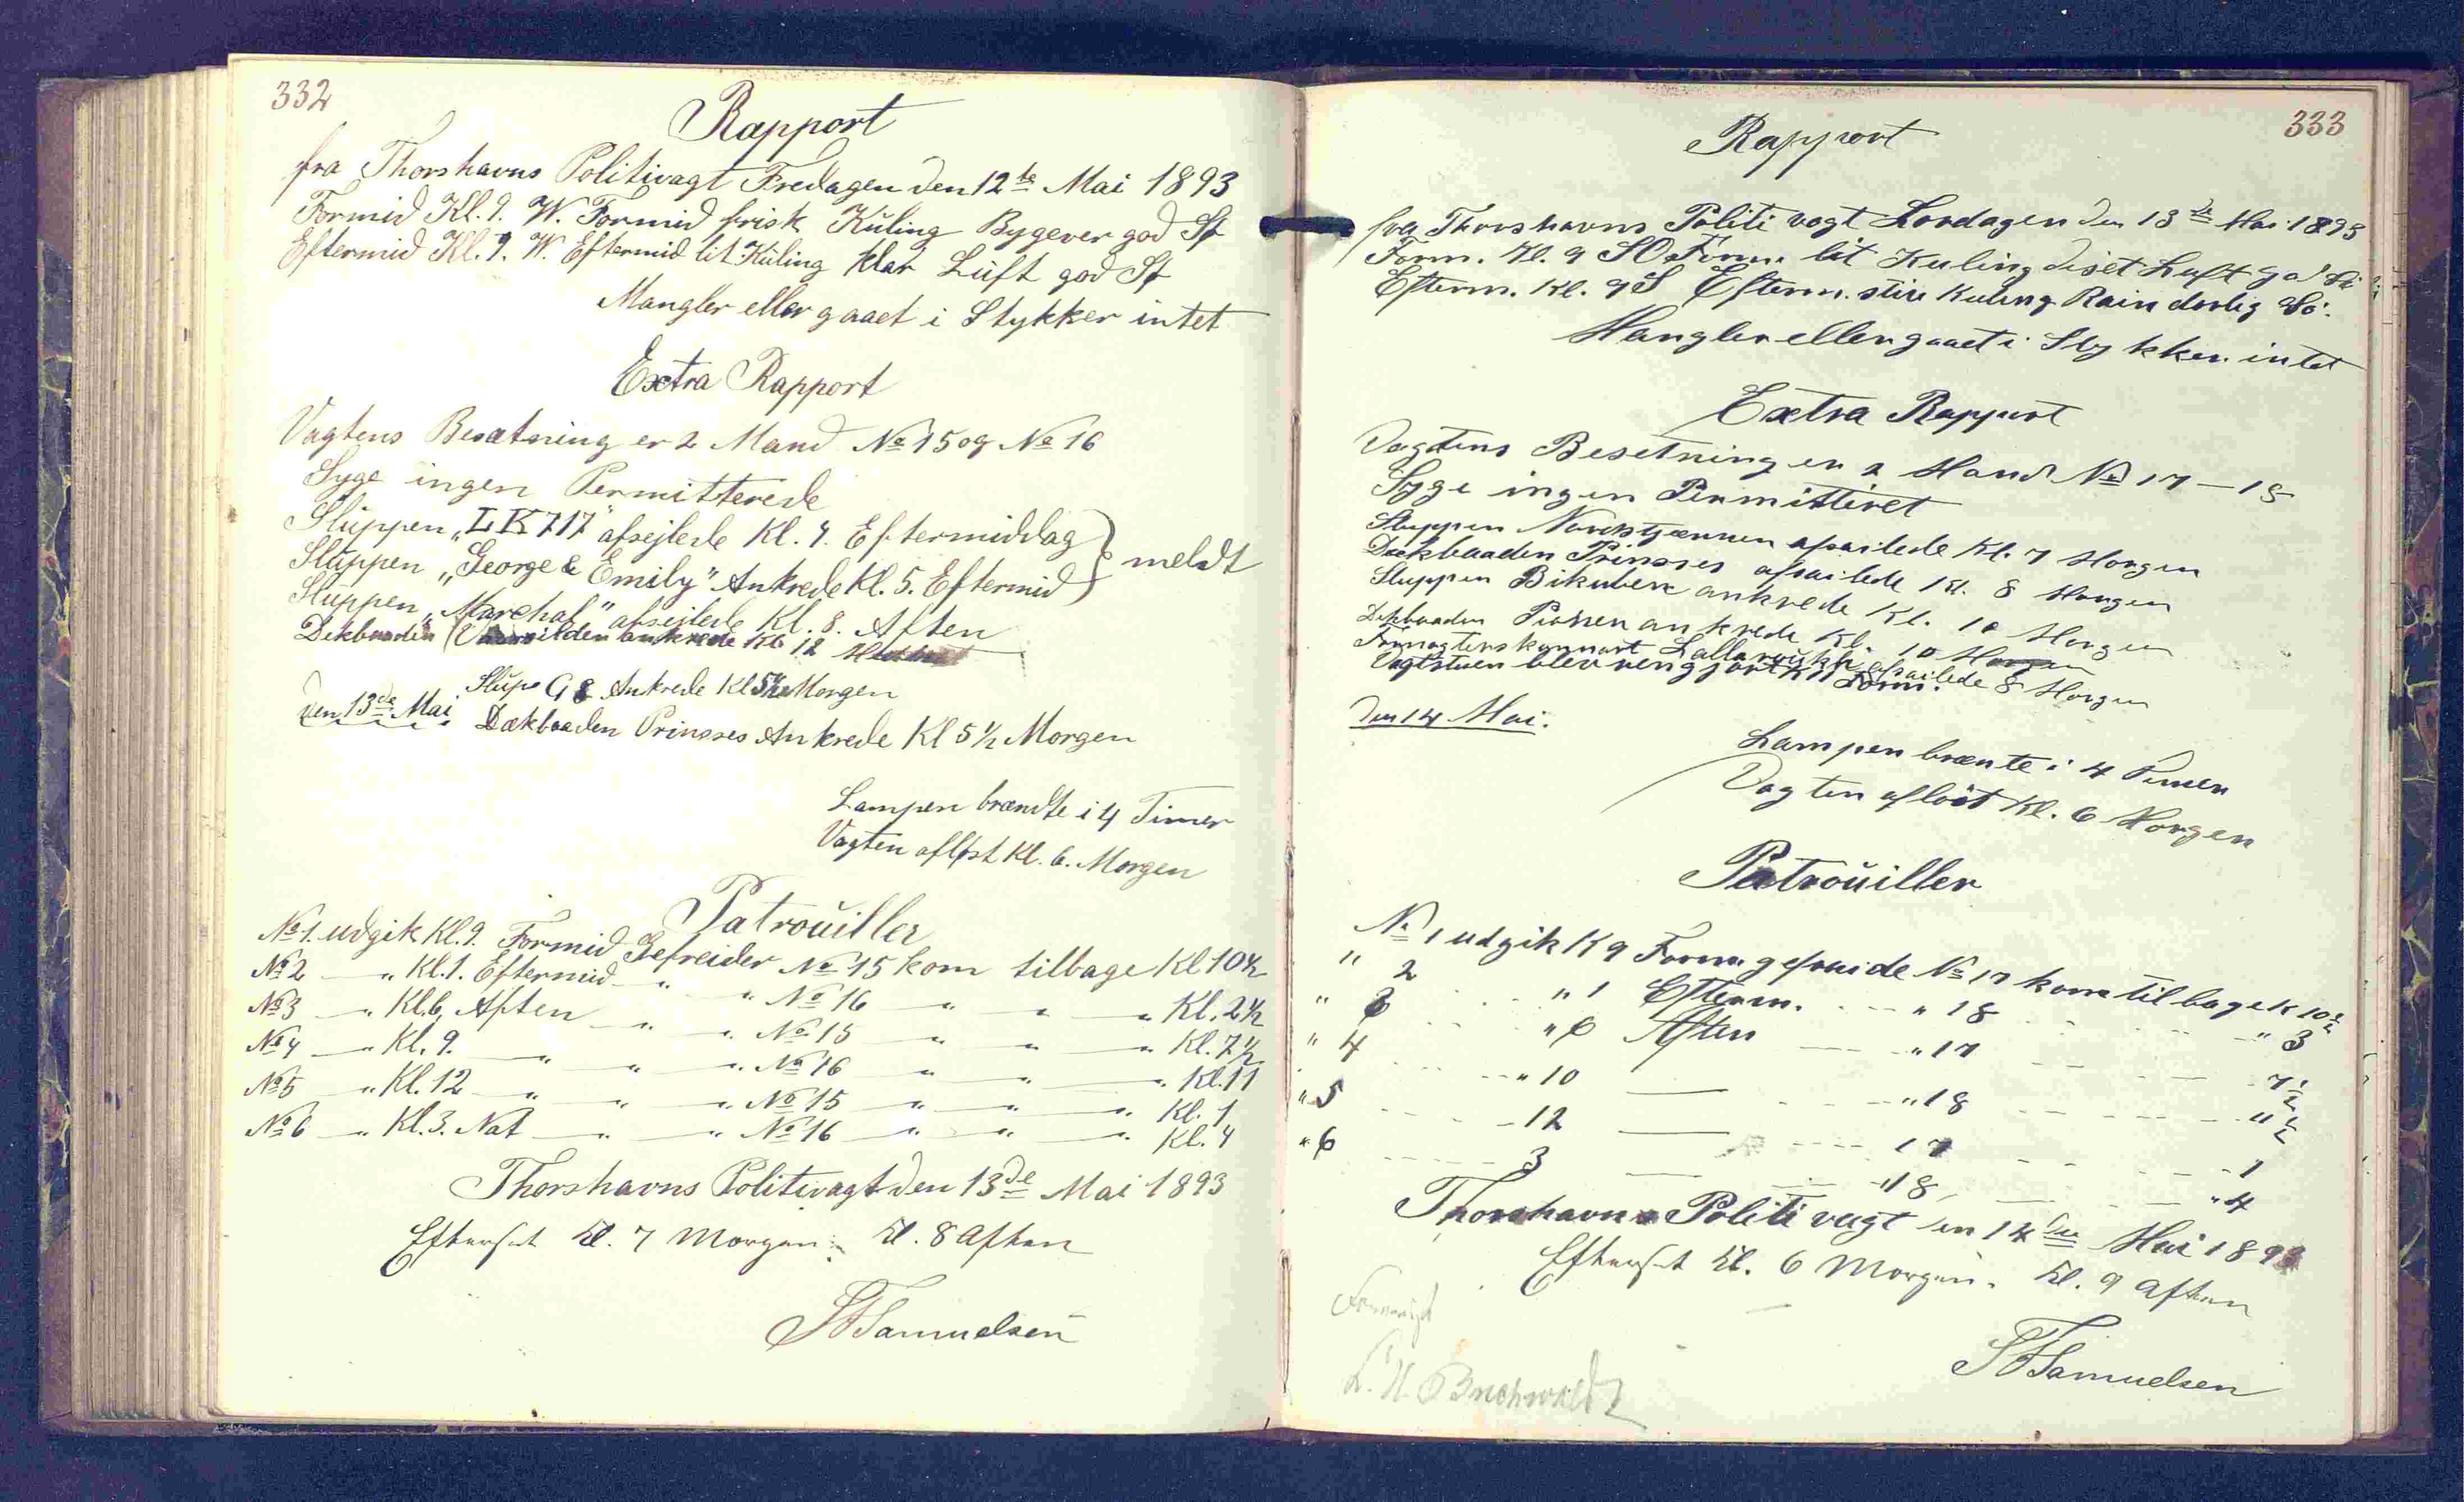 332
Rapport
fra Thorshavns Politivagt Fredagen den 12te Mai 1893
Formid Kl. 9. W. Formid frisk Küling Bygever god Sø
Eftermid Kl. 9. W. Eftermid lit Küling klar Lüft god Sø
Mangler eller gaaet i Stykker intet
Extra Rapport
Vagtens Besætning er 2 Mand No 15 og No 16
Syge ingen Permitterede
Slüppen „LK 717" afsejlede Kl. 4. Eftermiddag
Slüppen „George & Emily" Ankrede Kl. 5. Eftermid } meldt
Slüppen „Marchal" afsejlede Kl. 8. Aften
Dekbaaden ankrede Kl 12
Slüp G 8 Ankrede Kl 5½ Morgen
den 13de Mai Dækbaaden Prinsses Ankrede Kl 5 ½ Morgen
Lampen brændte i 4 Timer
Vagten afløst Kl. 6. Morgen
Patroüiller
No 1. udgik Kl. 9. Formid Gefreider No 15 kom tilbage Kl 10½
No 2 — „ Kl. 1. Eftermid — „ „ No 16 — „ „ — „ Kl. 2½
No 3 — „ Kl. 6. Aften — „ — „ No 15 — „ „ — „ Kl. 7½
No 4 — „ Kl. 9. — „ — „ — „ No 16 — „ „ — „ Kl. 11
No 5 — „ Kl. 12 — „ — „ — „ No 15 — „ „ — „ Kl. 1
No 6 — „ Kl. 3. Nat — „ — „ No 16 — „ „ — „ Kl. 4
Thorshavns Politivagt den 13de Mai 1893
Efterset Kl. 7 Morgen. Kl. 8 Aften
Samuelsen
333
Rapport
fra Thorshavns Politi vagt Lordagen den 13de Mai 1893
Form. Kl. 9 SO Form. lit Kuling diset Luft god Sö
Efterm. Kl. 9 S Efterm. stiv Kuling Rain dorlig Sö.
Mangler eller gaaet i Stykker intet
Extra Rapport
Vagtens Besetning er 2 Mand No 17 — 18
Syge ingen Permitteret
Sluppen Nordstjærnen afsailede Kl. 7 Morgen
Dækbaaden Prinsses afsailede Kl. 8 Morgen
Sluppen Bikuben ankrede Kl. 10 Morgen
Dekbaaden ankrede Kl. 10 Morgen
Lalla Roükh afsailede 8 Morgen
Vagtstuen blev rengjort Form.
Den 14 Mai.
Lampen brænte i 4 Timer
Vagten aflöst Kl. 6 Morgen
Patroüiller
No 1 udgik K 9 Form gefraide No 17 kom tilbage K 10½
" 2 " 1 Efterm. " 18 " 3
" 3 " 6 Aften " 17 7½
" 4 " 10 — " 18 " 11½
" 5 12 — 17 1
" 6 3 — 18 " 4
Thorshavns Politi vagt den 14de Mai 1893
Efterset Kl. 6 Morgen. Kl. 9 Aften
Samuelsen
Buchwaldt